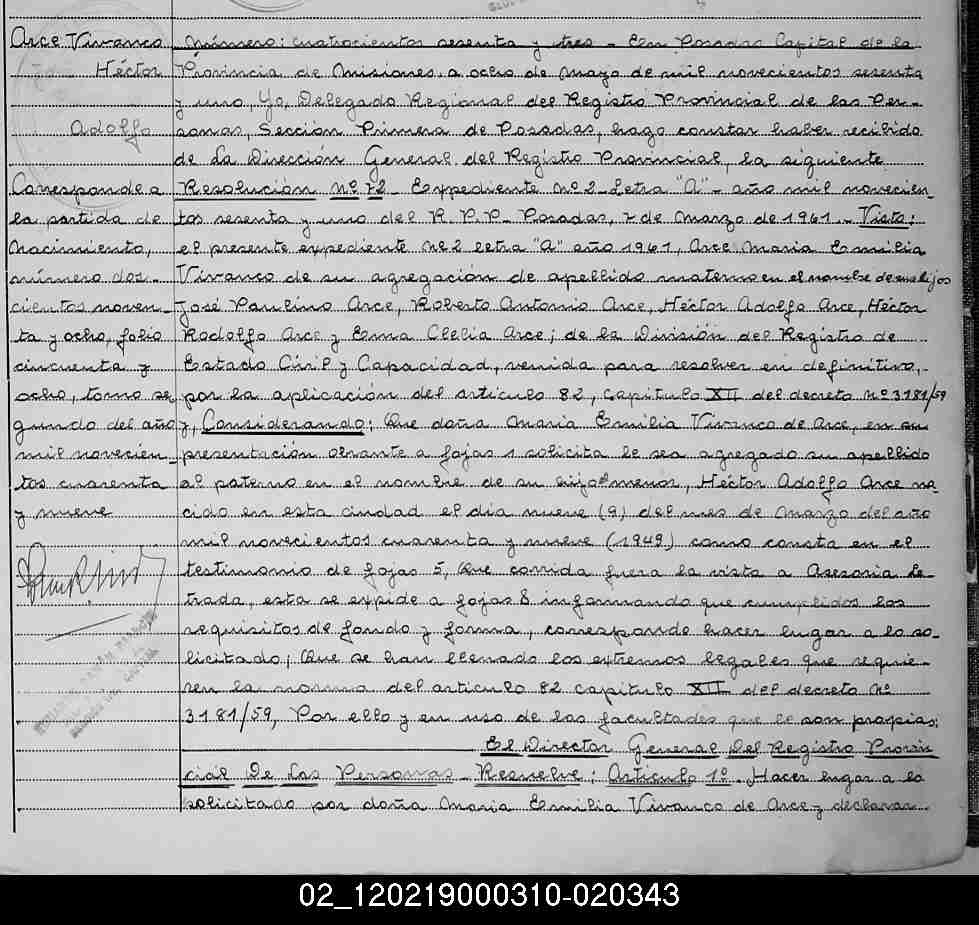 Arce Vivanco
Héctor
Adolfo
Corresponde a
la partida de
nacimiento,
número dos-
cientos noven-
ta y ocho, folio
cincuenta y
ocho, tomo se-
gundo del año
mil novecien-
tos cuarenta
y nueve
Número: cuatrocientos sesenta y tres - En Posadas Capital de la
Provincia de Misiones, a ocho de Mayo de mil novecientos sesenta
y uno, Yo, Delegado Regional del Registro Provincial de las Per-
sonas, Sección Primera de Posadas, hago constar haber recibido
de La Dirección General del Registro Provincial, la siguiente
Resolución nº 72 - Expediente nº 2 - Letra "A" - año mil novecien-
tos sesenta y uno del R. P. P. - Posadas, 7 de Marzo de 1961 - Visto:
el presente expediente nº 2 letra "A" año 1961, Arce, Maria Emilia
Vivanco de su agregación de apellido materno en el nombre de sus hijos
José Paulino Arce, Roberto Antonio Arce, Héctor Adolfo Arce, Héctor
Rodolfo Arce y Ema Clelia Arce; de la División del Registro de
Estado Civil y Capacidad, venida para resolver en definitivo,
por la aplicación del artículo 82, capitulo XII del decreto nº 3181/59
y, Considerando: Que doña Maria Emilia Vivanco de Arce, en su
presentación obrante a fojas 1 solicita le sea agregado su apellido
al paterno en el nombre de su hijo menor, Héctor Adolfo Arce na-
cido en esta ciudad el día nueve (9) del mes de Marzo del año
mil novecientos cuarenta y nueve (1949) como consta en el
testimonio de fojas 5, Que corrida fuera la vista a Asesoria Le-
trada, esta se expide a fojas 8 informando que cumplidos los
requisitos de fondo y forma, corresponde hacer lugar a lo so-
licitado; Que se han llenado los extremos legales que requie-
ren la norma del artículo 82 capitulo XII del decreto nº
3181/59, Por ello y en uso de las facultades que le son propias:
El Director General Del Registro Provin
cial De Las Personas - Resuelve: Artículo 1º - Hacer lugar a lo
solicitado por doña Maria Emilia Vivanco de Arce y declarar
02_120219000310-020343